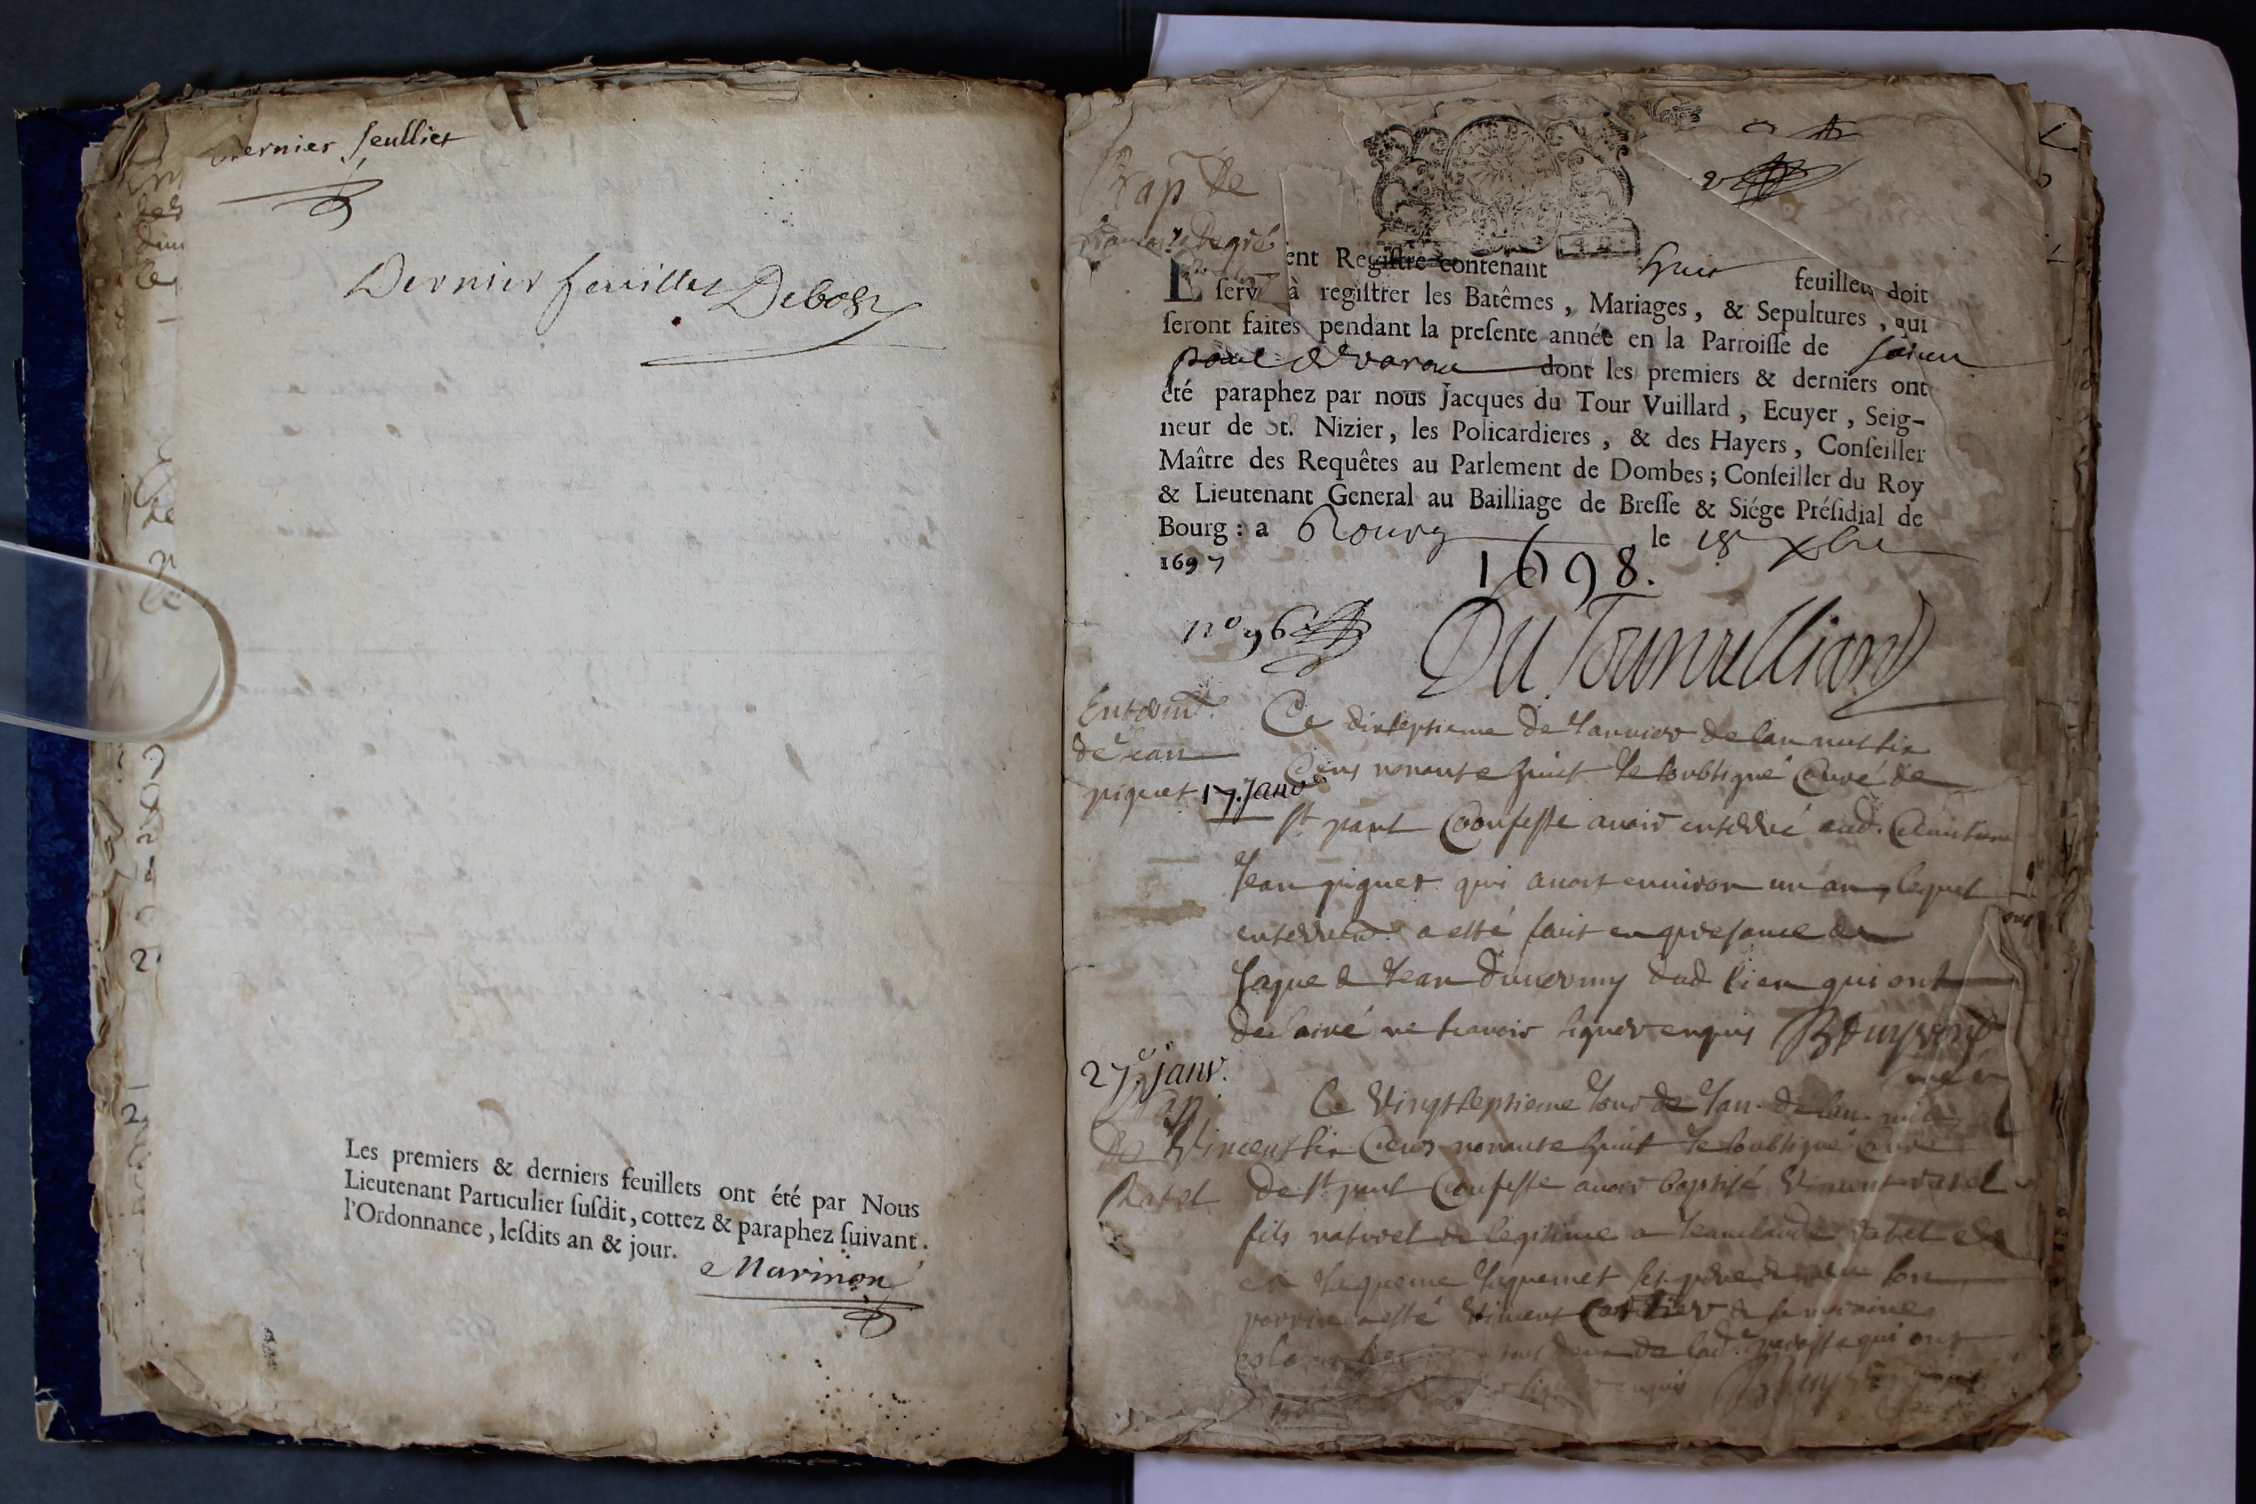 Dernier feulliet
Dernier feuillet Debost
Les premiers & derniers feuillets ont été par Nous
Lieutenant Particulier ſuſdit, cottez & paraphez ſuivant
l'Ordonnance, leſdits an & jour.
Marinon
Bap de
degré
ent Regiſtre contenant huit feuillets doit
ſerv à regiſtrer les Batêmes, Mariages, & Sepultures, qui
ſeront faites pendant la preſente année en la Parroiſſe de ſainct
paul de varax dont les premiers & derniers ont
été paraphez par nous Jacques du Tour Vuillard, Ecuyer, Seig-
neur de St. Nizier, les Policardieres, & des Hayers, Conſeiller
Maître des Requêtes au Parlement de Dombes; Conſeiller du Roy
& Lieutenant General au Bailliage de Breſſe & Siége Préſidial de
Bourg: a Bourg le 18 xbre
1697
1698.
no 96
Du Tourvuilliard
Enterremt
de Jean
piquet 17. Janv
Ce dixseptieme de Janvier de lan mil six
cens nonante huict Je soubsigné Curé de
St paul Confesse avoir enterré aud. Cimitiere
Jean piquet qui avoit environ un an, lequel
enterremt a esté faict en presance de
Jaque & Jean dud lieu qui ont
declairé ne scavoir signer enquis
27e janv.
Bap
De Vincent
Ratel
Ce vingtseptieme Jour de Jan. de lan mil
six cens nonante huict Je soubsigné Curé
de St paul Confesse avoir baptisé Vincent ratel
fils naturel & legitime a Jeanclaude ratel &
a Jaquemet ses pere & mere son
parrin a esté Vincent & sa maraine
de lad. parroisse qui ont
signer enquis